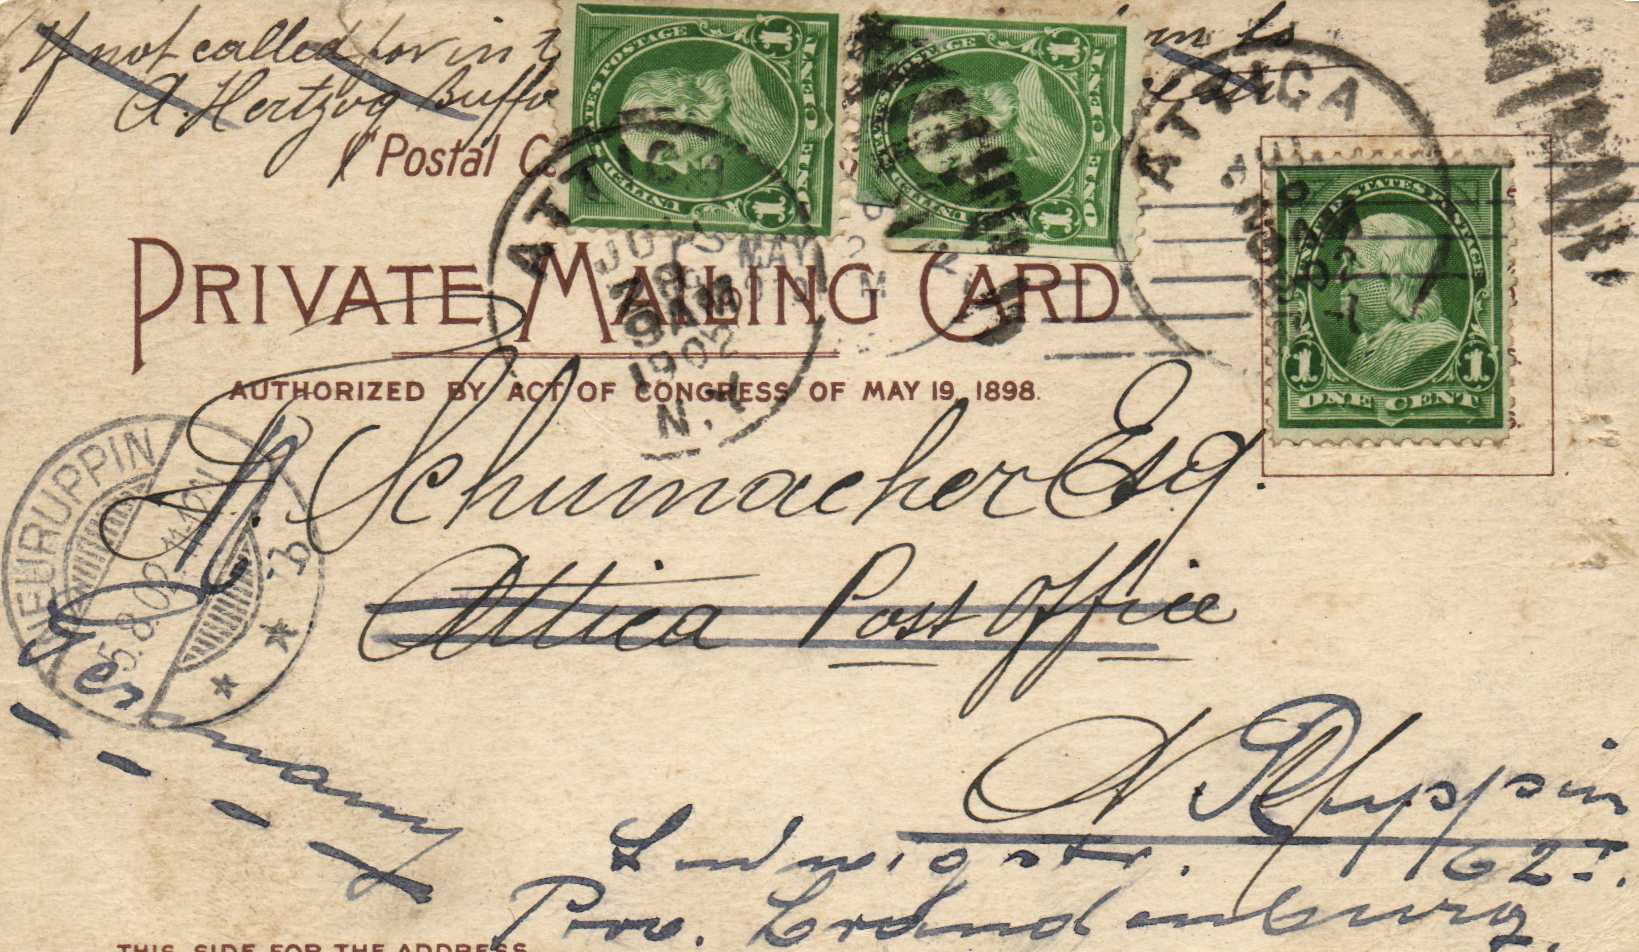 If not called for in
A. Hertzog Buffo
"Postal
PRIVATE MAILING CARD
AUTHORIZED BY ACT OF CONGRESS OF MAY 19, 1898.
UNITED STATES POSTAGE
1 ONE CENT 1
UNITED STATES POSTAGE
1 ONE CENT 1
UNITED STATES POSTAGE
1 ONE CENT 1
ATTICA
9 AM
1902
N.Y.
MAY
ATTICA
1902
NEURUPPIN
5.8.02 11-12N
* * b
Schumacher Esq.
Attica Post Office
Germany
N Ruppin
Ludwigstr. 62I.
Prov. Brandenburg.
THIS SIDE FOR THE ADDRESS